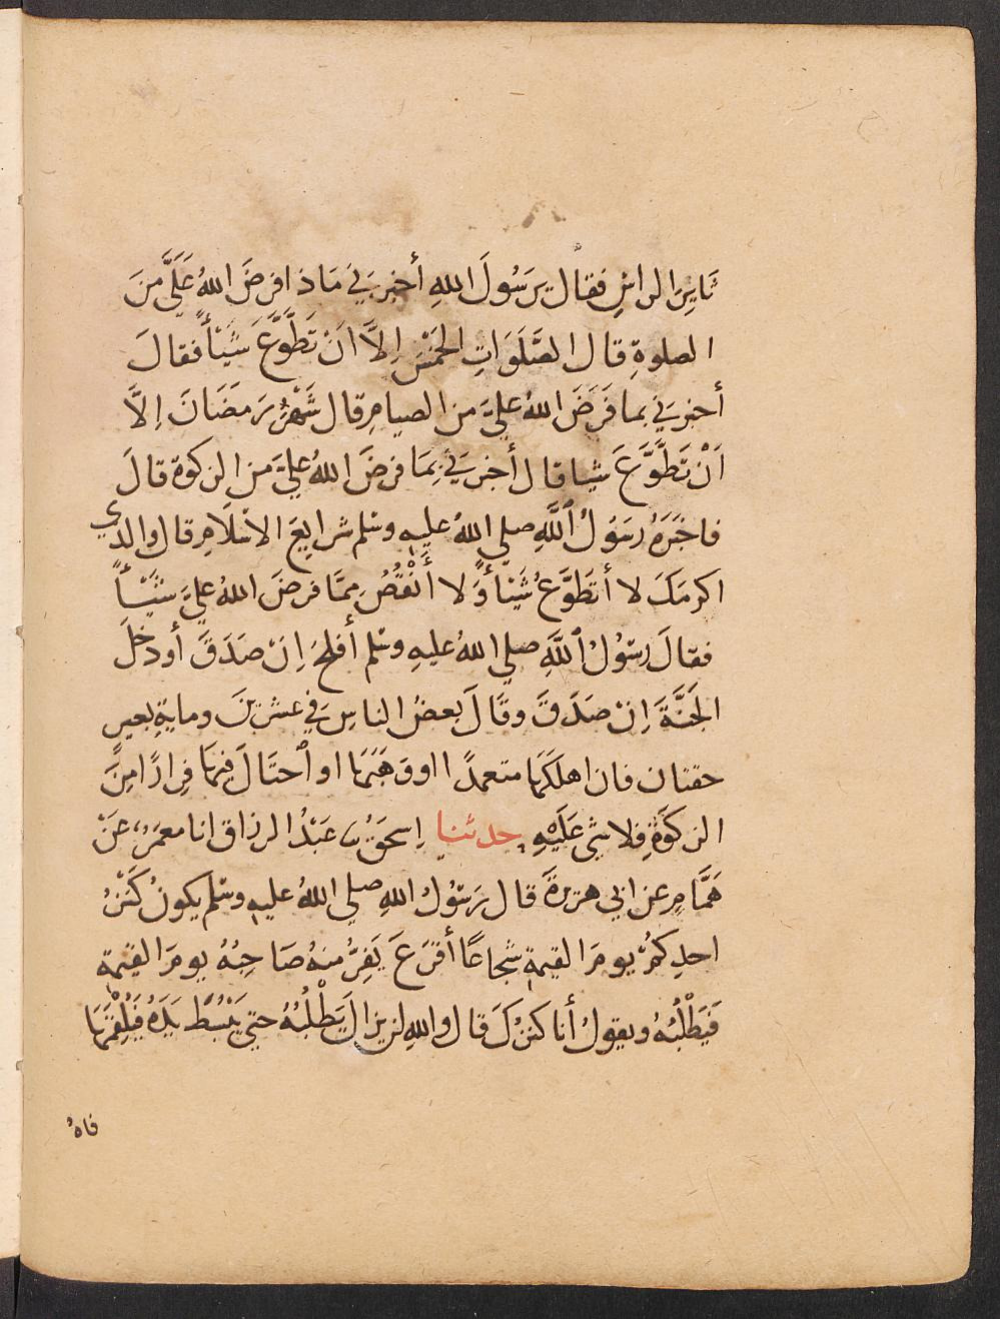 ثَايِرَ الراسِ فقال يرَسُولَ اللهِ أخبِرَنِي مَاذ افرضَ اللهُ عَلَيَّ منَ
الصلوةِ قال الصَّلَوَاتِ الخَمْسَ اِلاَّ انْ تَطَّوَّعَ شَيْأً فقالَ
أخبرَنِي بما فَرَضَ اللهُ عليَّ من الصيامِ قال شَهْرُ رَمَضَانَ اِلاَّ
اَنْ تَطَّوَّعَ شيا قال أخبرَنِي بِمَا فرضَ اللهُ عليَّ من الزكوة قالَ
فاخبَرَهُ رسَوُلُ اللَّهِ صلي اللهُ عليهِ وسَلم شرايعَ الاسْلَامِ قال والذي
اكرمَكَ لا أتطَوَّعُ شَيْأً وَلا أَنْقُصُ مِمَّا فرضَ اللهُ عليَّ شَيْأً
فقالَ رسَوُلُ اللَّهِ صلي اللهُ عليهِ وسَلم أفلَحَ اِنْ صَدَقَ أودخَلَ
الجَنَّةَ اِنْ صَدَقَ وقَالَ بعضُ الناسِ فِي عشرِينَ ومايةِ بعيرٍ
حقتان فان اهلكَهَا متعمدًا اووَهَبَهَا او اْحتَالَ فِيهَا فِرارًا مِنَ
الزكَوةِ فلاشي عَلَيْهِ حدثنا اِسحَقُ ، عَبْدُ الرزاق انا معمَرُ ، عَنْ
هَمَّامٍ عن ابي هريرةَ قال رَسَوُلُ اللهِ صلي اللهُ عليهِ وسَلم يكونُ كَنْزُ
احدِكمُ يومَ القيمةِ شجاعًا أقرَعَ يَفِرُّ منهُ صَاحِبُهُ يومَ القيمةِ
فَيَطْلُبُهُ ويقولُ أنا كنزُكَ قال واللهِ لن يزالَ يَطْلُبُهُ حتي يَبْسُطَ يَدَهُ فَيُلْقِمَهَا
فاهُ